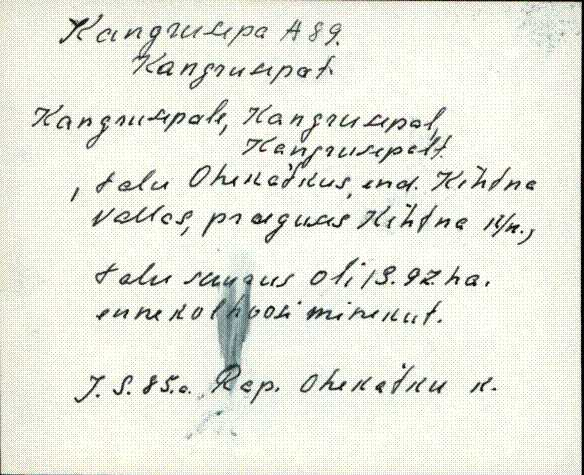 Kangrusepa A 89.
Kangrusepat.
Kangrusepale, Kangrusepal,
Kangrusepalt.
, talu Ohekatkus, end. Kehtna
vallas, praeguses Kehtna k/n.,
talu suurus oli 13.92 ha.
enne kolhoosi minekut.
J. S. 85.a. Rap. Ohekatku k.